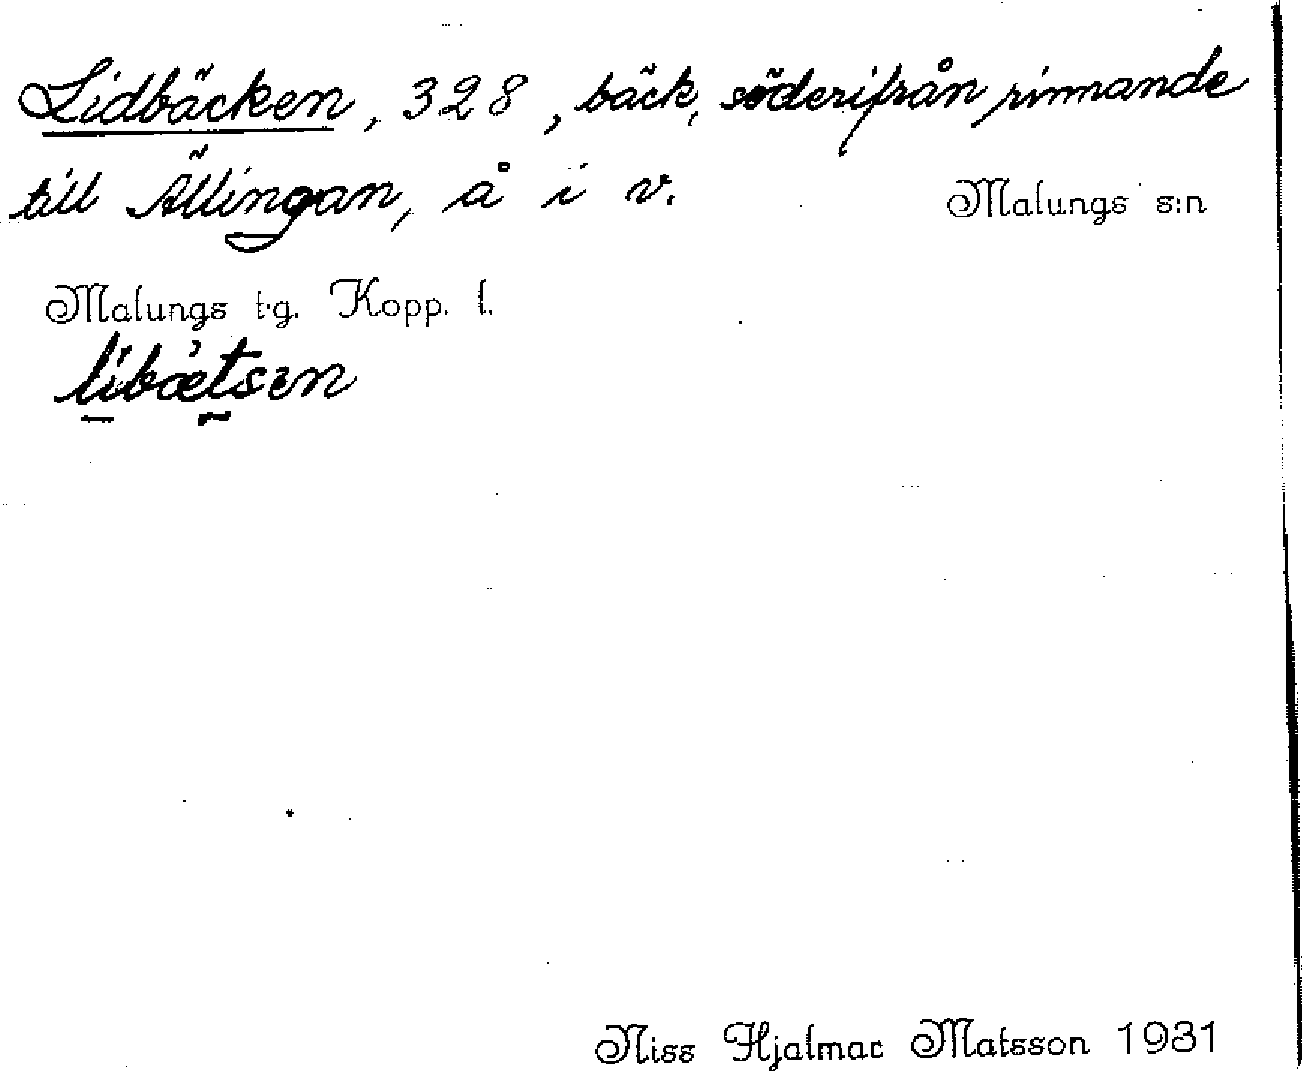 Lidbäcken, 328, bäck, söderifrån rinnande
till Ällingan, å i v. Malungs s:n
Malungs t.g. Kopp. l.
libætsɛn
Niss Hjalmar Matsson 1931